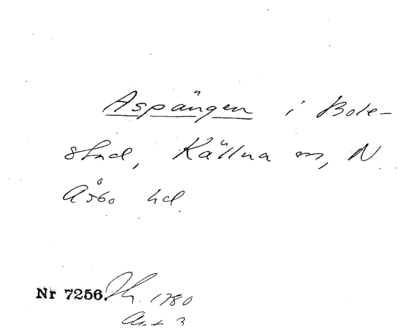 Aspängen i Bole-
stad, Källna sn, N.
Åsbo hd.
Nr 7256. 1780